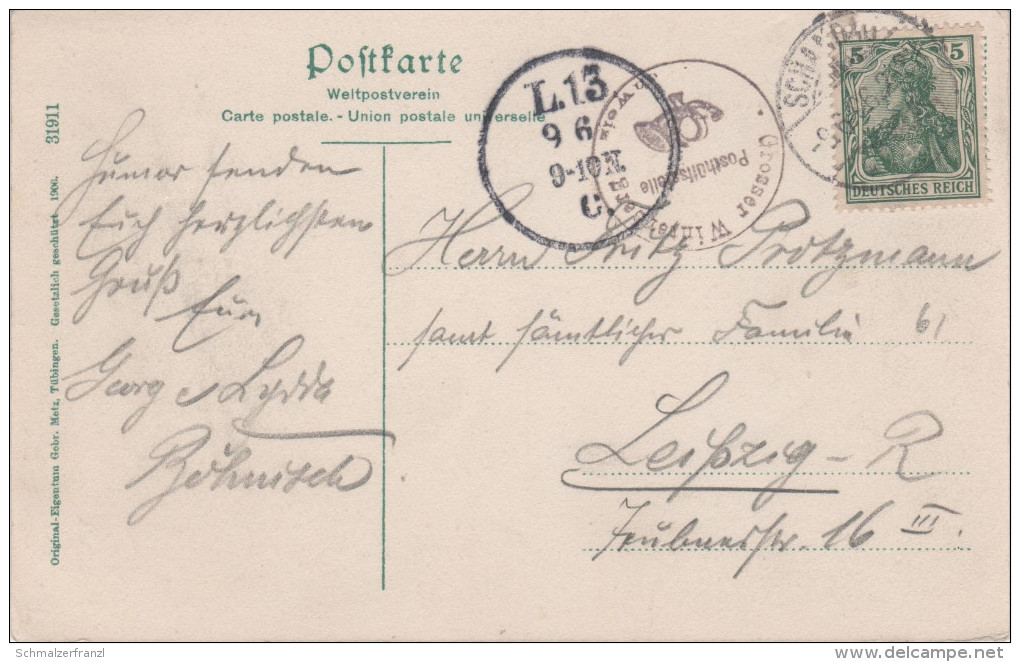 Postkarte
Weltpostverein
Carte postale. - Union postale universelle
31911
Original-Eigentum Gebr. Metz, Tübingen. Gesetzlich geschützt 1906.
L.13
9 6
9-10 N.
C.
Grosser Winter
Posthülfsstelle
5 5
DEUTSCHES REICH
Humor senden
Euch herzlichsten
Gruß
Eure
Georg u Lydda
Böhnisch
Herrn Fritz Protzmann
samt sämtlicher Familie 61
Leipzig - R
16 III.
Schmalzerfranzl
www.delcampe.net